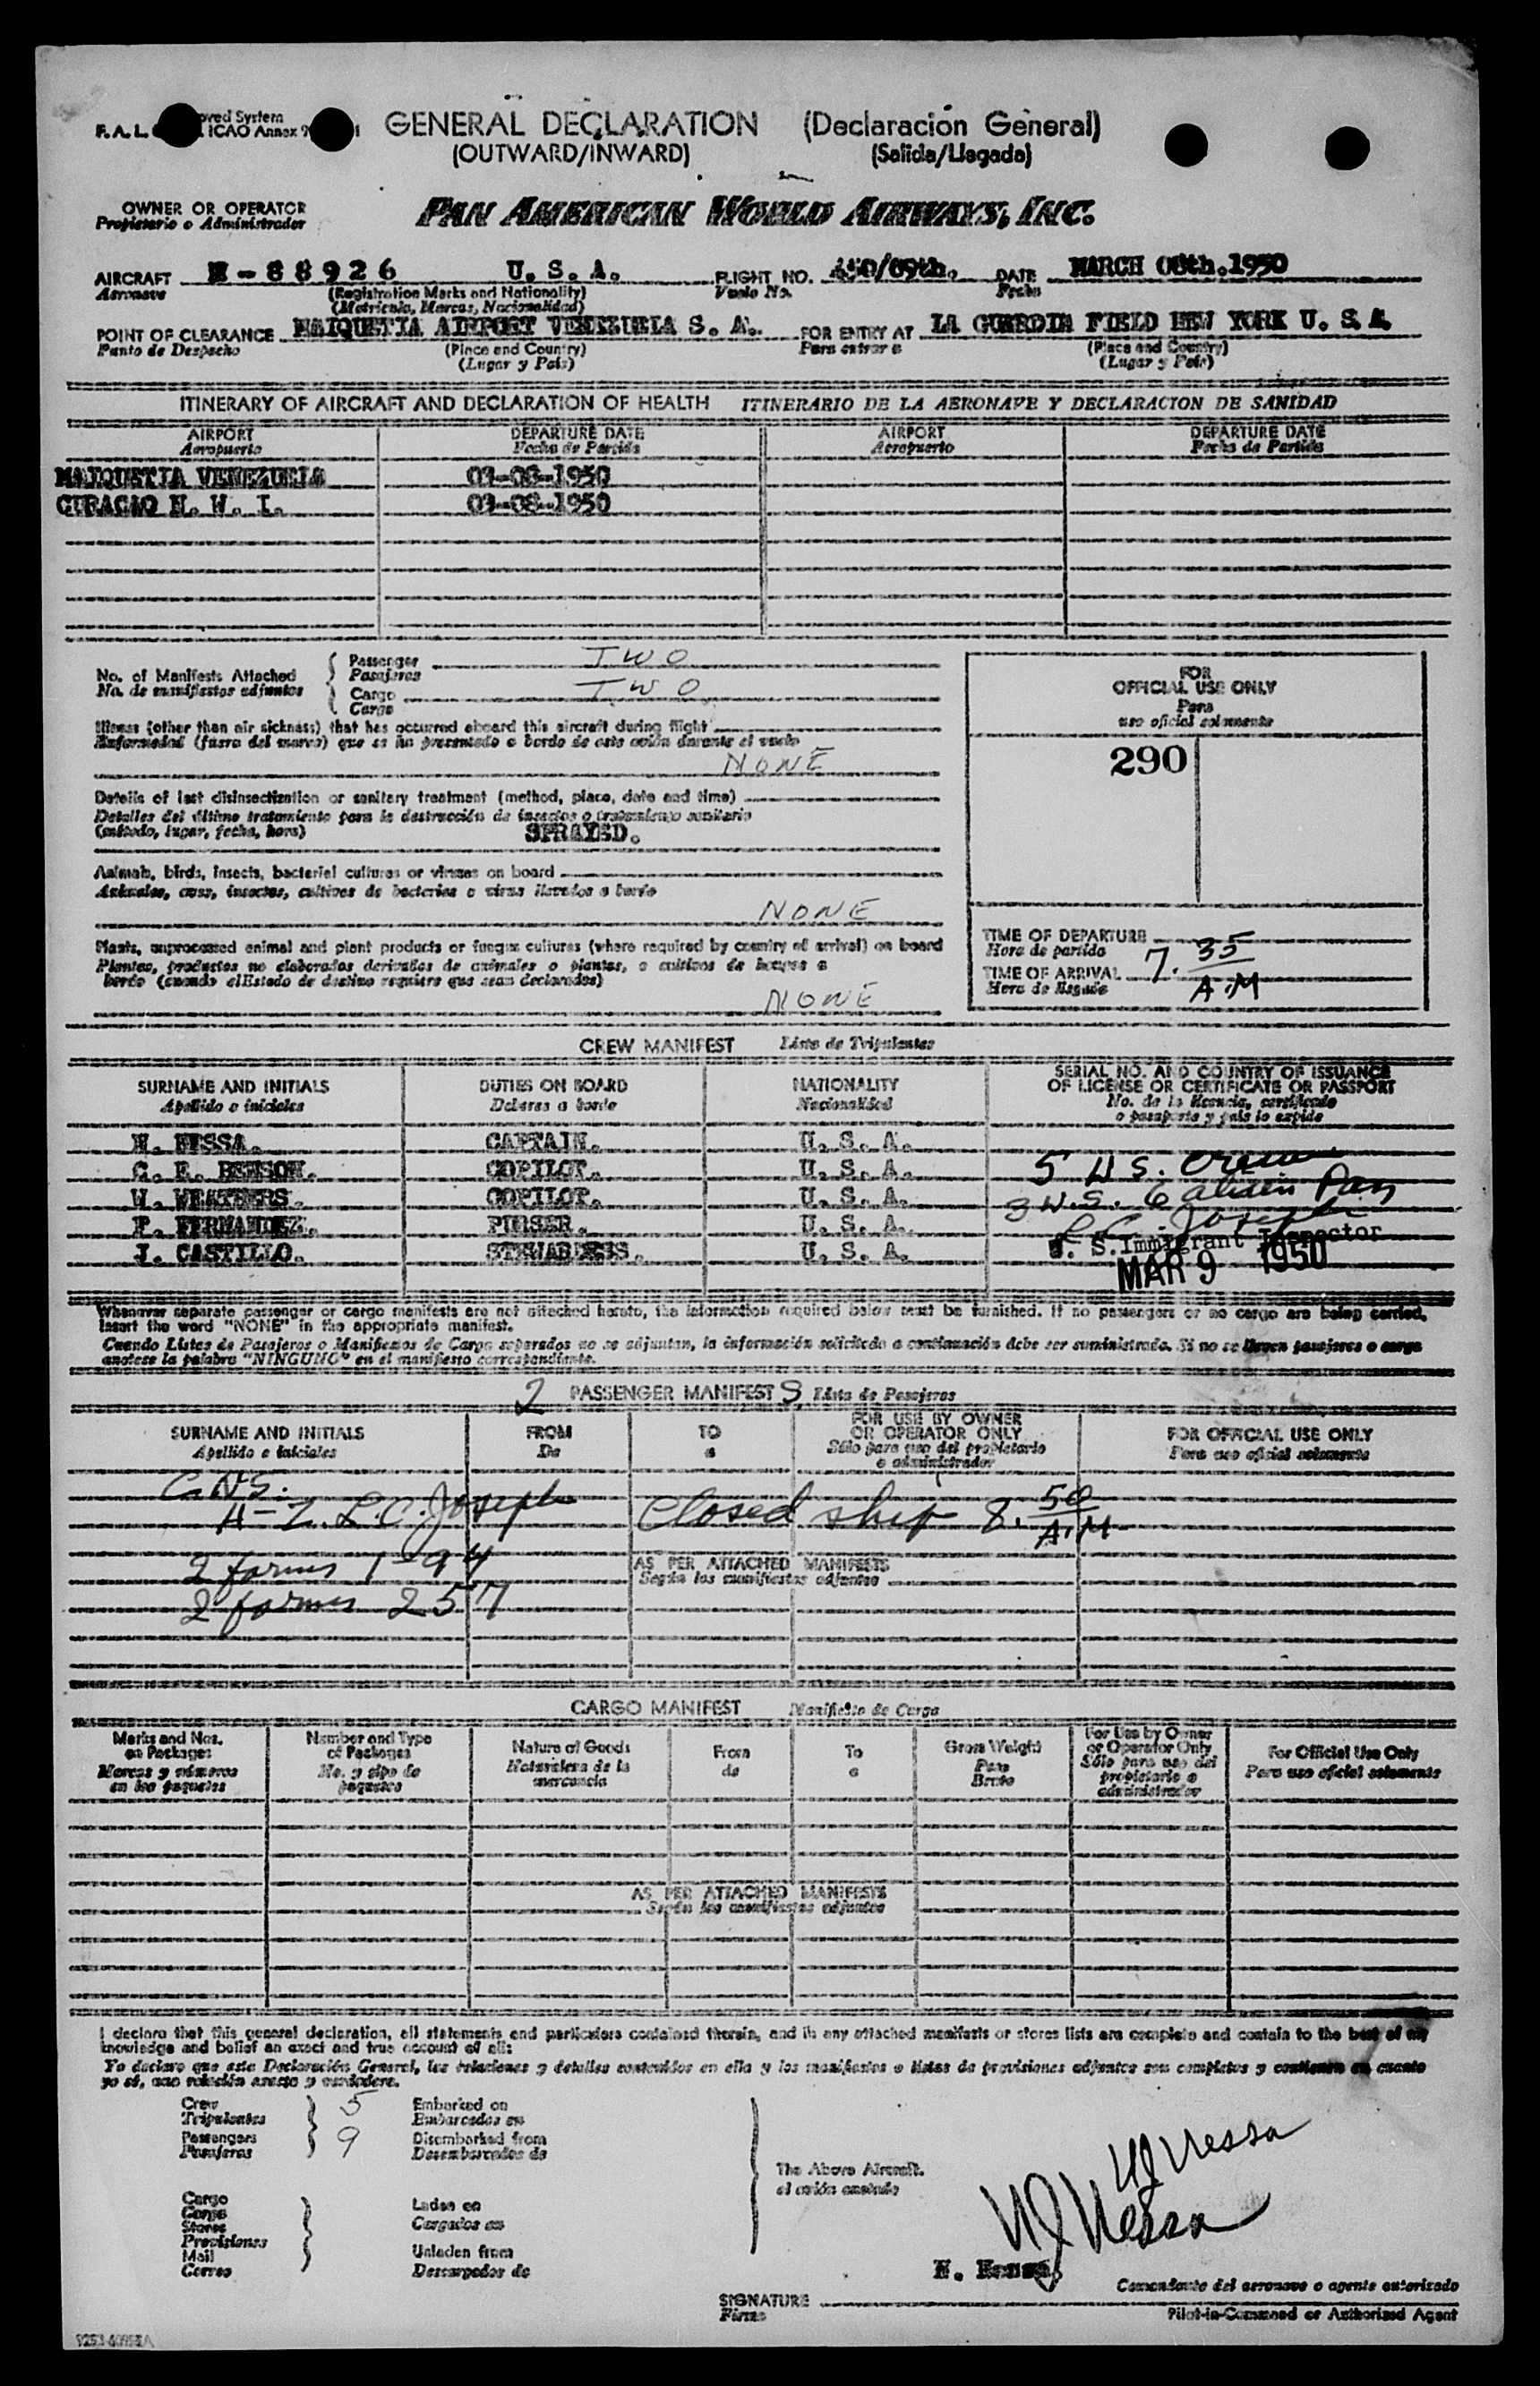 F. A. L.
oved System
ICAO Annex 9
GENERAL DECLARATION (Declaración General)
(OUTWARD/INWARD) (Salida/Llegada)
OWNER OR OPERATOR
Propietario o Administrador
PAN AMERICAN WORLD AIRWAYS, INC.
AIRCRAFT N-88926 U. S. A. FLIGHT NO. DATE MARCH 08th.1950
Aeronave (Registration Marks and Nationality) Vuelo No. Fecha
(Matricula, Marcas, Nacionalidad)
POINT OF CLEARANCE MAIQUETIA AIRPORT VENEZUELA S. A. FOR ENTRY AT LA GUARDIA FIELD NEW YORK U. S. A.
Punto de Despacho (Place and Country) Para entrar a (Place and Country)
(Lugar y País) (Lugar y País)
ITINERARY OF AIRCRAFT AND DECLARATION OF HEALTH ITINERARIO DE LA AERONAVE Y DECLARACION DE SANIDAD
AIRPORT DEPARTURE DATE AIRPORT DEPARTURE DATE
Aeropuerto Fecha de Partida Aeropuerto Fecha de Partida
MAIQUETIA VENEZUELA 03-08-1950
CURACAO N. W. I. 03-08-1950
No. of Manifests Attached
No. de manifiestos adjuntos
Passenger TWO
Pasajeros
Cargo TWO
Cargo
Illness (other than air sickness) that has occurred aboard this aircraft during flight
Enfermedad (fuera del mareo) que se ha presentado a bordo de este avión durante el vuelo
NONE
Details of last disinsectization or sanitary treatment (method, place, date and time)
Detalles del último tratamiento para la destrucción de insectos o tratamiento sanitario
(método, lugar, fecha, hora) SPRAYED.
Animals, birds, insects, bacterial cultures or viruses on board
Animales, aves, insectos, cultivos de bacterias o virus llevados a bordo
NONE
Plants, unprocessed animal and plant products or fungus cultures (where required by country of arrival) on board
Plantas, productos no elaborados derivados de animales o plantas, o cultivos de hongos a
bordo (cuando el Estado de destino requiere que sean declarados)
NONE
FOR
OFFICIAL USE ONLY
Para
uso oficial solamente
290
TIME OF DEPARTURE
Hora de partida
TIME OF ARRIVAL 7.35
Hora de llegada A.M
CREW MANIFEST Lista de Tripulantes
SURNAME AND INITIALS DUTIES ON BOARD NATIONALITY SERIAL NO. AND COUNTRY OF ISSUANCE
OF LICENSE OR CERTIFICATE OR PASSPORT
Apellido e iniciales Deberes a bordo Nacionalidad No. de la licencia, certificado
o pasaporte y país lo expide
N. NESSA. CAPTAIN. U. S. A.
C. E. BENSON. COPILOT. U. S. A.
W. WEATHERS. COPILOT. U. S. A.
F. FERNANDEZ. PURSER. U. S. A.
J. CASTILLO. STEWARDESS. U. S. A.
5 US. Crew
3 U.S. 6 alien Pax
L. C. Joseph
U. S. Immigrant Inspector
MAR 9 1950
Whenever separate passenger or cargo manifests are not attached hereto, the information required below must be furnished. If no passengers or no cargo are being carried,
insert the word "NONE" in the appropriate manifest.
Cuando Listas de Pasajeros o Manifiestos de Carga separados no se adjuntan, la información solicitada a continuación debe ser suministrada. Si no se llevan pasajeros o carga
anotese la palabra "NINGUNO" en el manifiesto correspondiente.
2 PASSENGER MANIFEST S Lista de Pasajeros
SURNAME AND INITIALS FROM TO FOR USE BY OWNER
OR OPERATOR ONLY FOR OFFICIAL USE ONLY
Apellido e iniciales De a Sólo para uso del propietario
o administrador Para uso oficial solamente
H-Z. L.C. Joseph Closed ship 8.50
A.M
2 forms I-94
2 forms 257
AS PER ATTACHED MANIFESTS
Según los manifiestos adjuntos
CARGO MANIFEST Manifiesto de Carga
Marks and Nos.
on Packages
Marcas y números
en los paquetes
Number and Type
of Packages
No. y tipo de
paquetes
Nature of Goods
Naturaleza de la
mercancía
From
de
To
a
Gross Weight
Peso
Bruto
For Use by Owner
or Operator Only
Sólo para uso del
propietario o
administrador
For Official Use Only
Para uso oficial solamente
AS PER ATTACHED MANIFESTS
Según los manifiestos adjuntos
I declare that this general declaration, all statements and particulars contained therein, and in any attached manifests or stores lists are complete and contain to the best of my
knowledge and belief an exact and true account of all:
Yo declaro que esta Declaración General, las relaciones y detalles contenidos en ella y los manifiestos o listas de provisiones adjuntos son completos y contienen en cuanto
yo sé, una relación exacta y verdadera.
Crew 5 Embarked on
Tripulantes Embarcados en
Passengers 9 Disembarked from
Pasajeros Desembarcados de
The Above Aircraft.
el avión anotado
Cargo
Carga
Stores
Provisiones
Mail
Correo
Laden on
Cargados en
Unladen from
Descargados de
N J Nessa
N J Nessa
N. Nessa.
Comandante del aeronave o agente autorizado
SIGNATURE
Firma
Pilot-in-Command or Authorized Agent